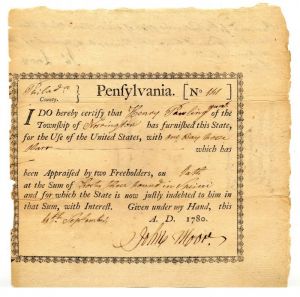 Philad.a } Pensylvania. [No 141
County.
I DO hereby certify that Henry Pawling of the
Township of Norrington has furnished this State,
for the Use of the United States, with one Bay horse
which has
been Appraised by two Freeholders, on Oath
at the Sum of Forty three pounds in specie
and for which the State is now justly indebted to him in
that Sum, with Interest. Given under my Hand, this
6th September A. D. 1780.
John Moore